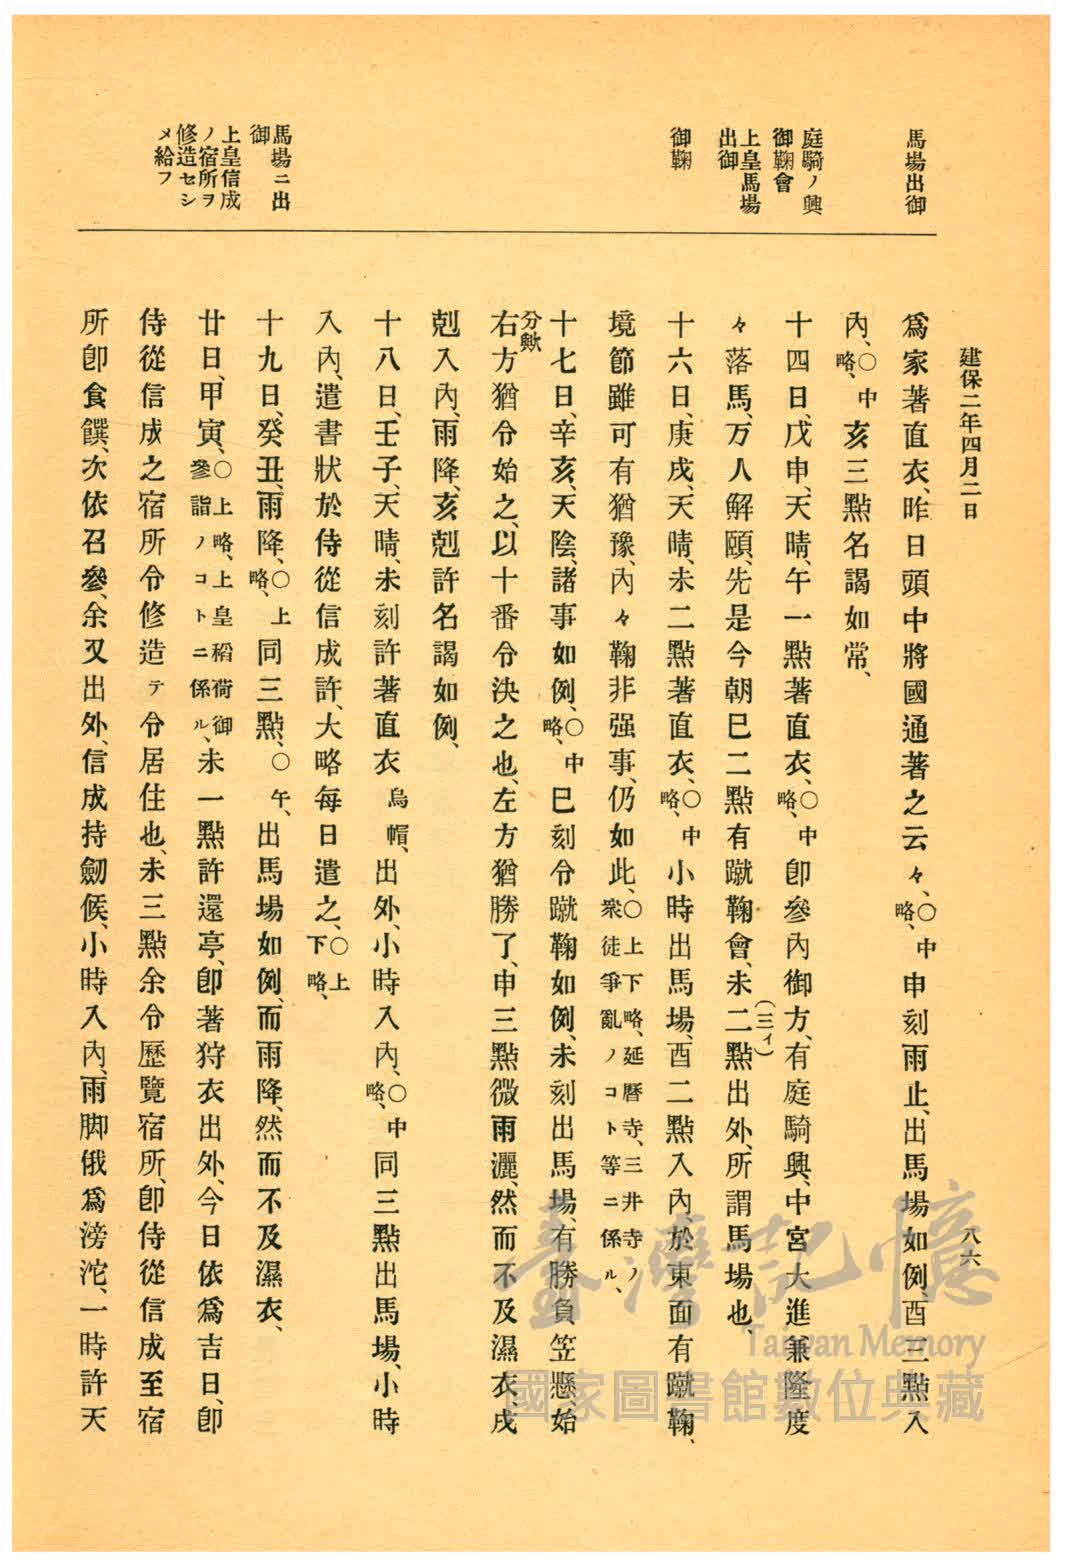 建保二年四月二日
八六
馬場出御
庭騎ノ興
御鞠會
上皇馬場
出御
御鞠
馬場ニ出
御
上皇信成
ノ宿所ヲ
修造セシ
メ給フ
爲家著直衣、昨日頭中將國通著之云々、〇中略、申刻雨止、出馬場如例、酉三點入
內、〇中略、亥三點名謁如常、
十四日、戊申、天晴、午一點著直衣、〇中略、卽參內御方、有庭騎興、中宮大進兼隆度
々落馬、万人解頤、先是今朝巳二點有蹴鞠會、未二(三イ)點出外、所謂馬場也、
十六日、庚戌、天晴、未二點著直衣、〇中略、小時出馬場、酉二點入內、於東面有蹴鞠、
境節雖可有猶豫、內々鞠非强事、仍如此、〇上下略、延曆寺、三井寺ノ衆徒爭亂ノコト等ニ係ル、
十七日、辛亥、天陰、諸事如例、〇中略、巳刻令蹴鞠如例、未刻出馬場、有勝負笠懸、始
分歟
右方猶令始之、以十番令決之也、左方猶勝了、申三點微雨灑、然而不及濕衣、戌
剋入內、雨降、亥剋許名謁如例、
十八日、壬子、天晴、未刻許著直衣烏帽、出外、小時入內、〇中略、同三點出馬場、小時
入內、遣書狀於侍從信成許、大略每日遣之、〇上下略、
十九日、癸丑、雨降、〇上略、同三點、〇午、出馬場如例、而雨降、然而不及濕衣、
廿日、甲寅、〇上略、上皇稻荷御參詣ノコトニ係ル、未一點許還亭、卽著狩衣出外、今日依爲吉日、卽
侍從信成之宿所、令修造テ令居住也、未三點余令歷覽宿所、卽侍從信成至宿
所卽食饌、次依召參、余又出外、信成持劒候、小時入內、雨脚俄爲滂沱、一時許天
臺灣記憶
Taiwan Memory
國家圖書館數位典藏